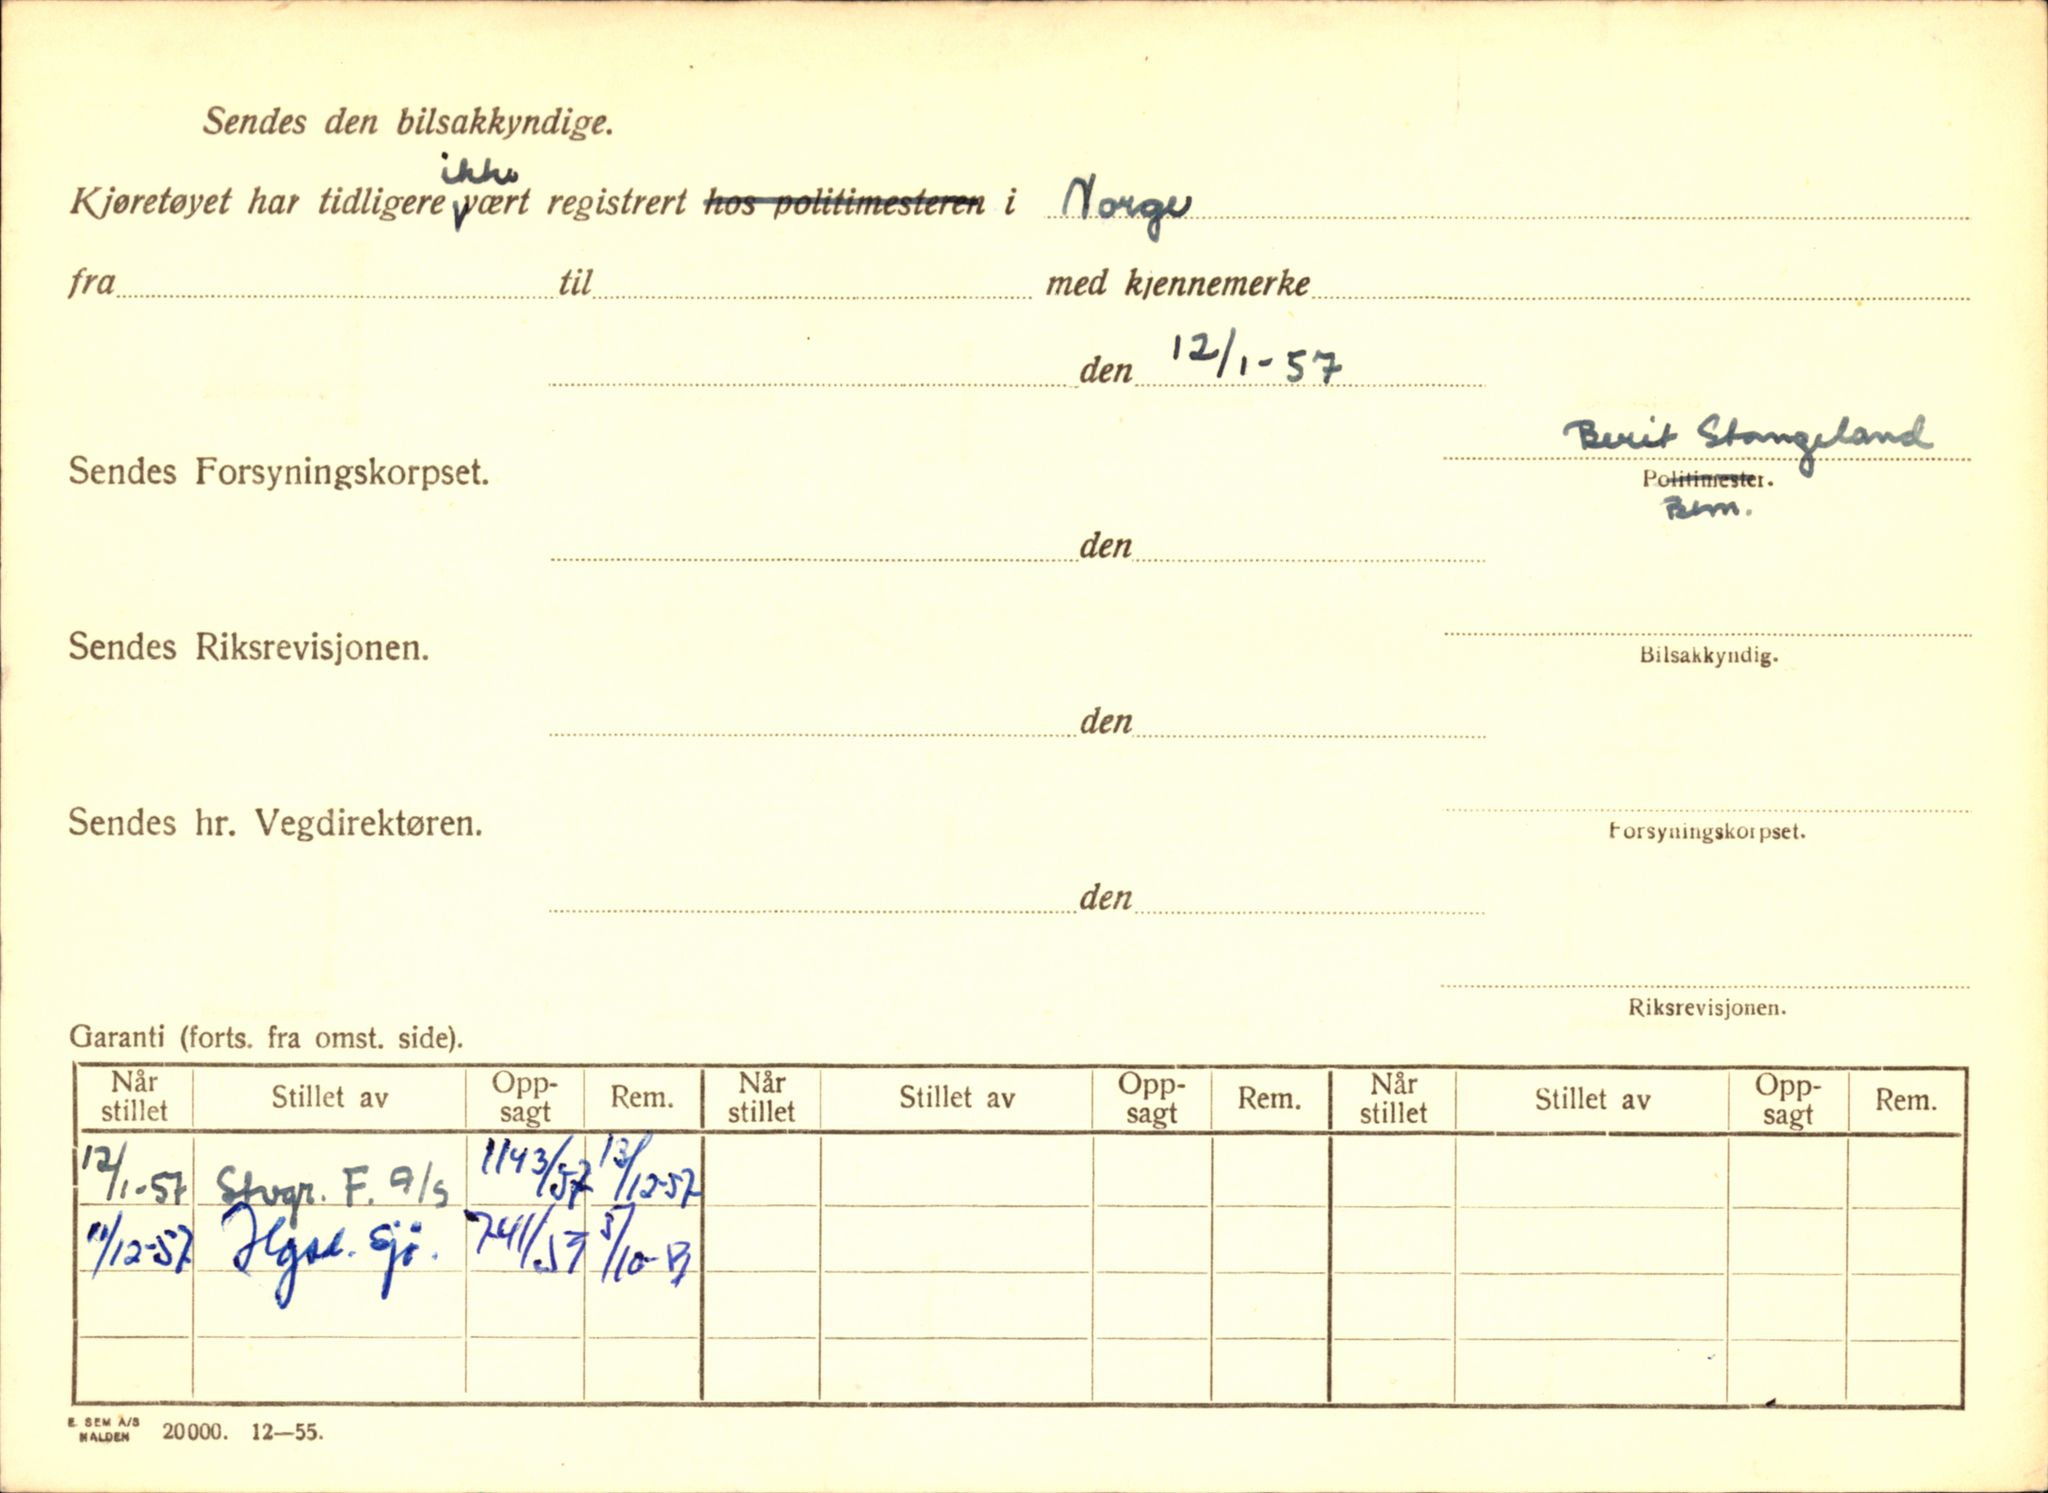 Sendes den bilsakkyndige.
ikke
Kjøretøyet har tidligere vært registrert hos politimesteren i Norge
fra til med kjennemerke
den 12/1-57
Berit Stangeland
Sendes Forsyningskorpset.
Politimester.
Bem.
den
Sendes Riksrevisjonen.
Bilsakkyndig.
den
Sendes hr. Vegdirektøren.
Forsyningskorpset.
den
Riksrevisjonen.
Garanti (forts. fra omst. side).
Når stillet Stillet av Opp-sagt Rem. Når stillet Stillet av Opp-sagt Rem. Når stillet Stillet av Opp-sagt Rem.
12/1-57 Stvgr. F. A/S 1143/57 13/12-57
11/12-57 Sjö. 741/
E. SEM A/S
HALDEN 20000. 12—55.